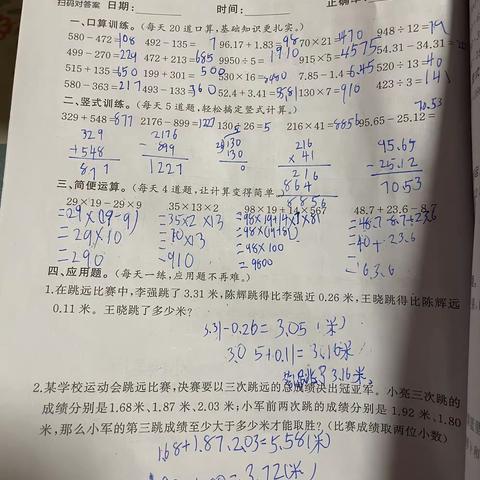 扫码对答案 日期: 时间: 正确率
一、口算训练。(每天20道口算,基础知识更扎实。)
580-472=108 492-135= 7.96.17+1.83=98 70×21=1470 948÷12=79
499-270=229 472+213=685 9950÷5= 915×5=4575 54.31-34.31=
515+135=650 199+301=500 530×16= 7.85-1.4=6.45 520÷13=40
580-363=217 493-133=360 52.4+3.41= 130×7=910 423÷3=141
二、竖式训练。(每天5道题,轻松搞定竖式计算。)
70.53
329+548=877 2176-899=1227 130÷26=5 216×41=8856 95.65-25.12=
329 2176 5 216 95.65
+548 -899 130 ×41 -25.12
877 1227 130 216 70.53
0 864
8856
三、简便运算。(每天4道题,让计算变得简单。)
29×19-29×9 35×13×2 98×19+14×567 48.7+23.6-8.7
=29×(19-9) =35×2×13 =98×19+14×7×81 =48.7-8.7+23.6
=29×10 =70×13 =98×(19+81) =40+23.6
=290 =910 =98×100 =63.6
=9800
四、应用题。(每天一练,应用题不再难。)
1.在跳远比赛中,李强跳了3.31米,陈辉跳得比李强近0.26米,王晓跳得比陈辉远
0.11米。王晓跳了多少米?
3.31-0.26=3.05(米)
3.05+0.11=3.16米
3.16米
2.某学校运动会跳远比赛,决赛要以三次跳远的总成绩决出冠亚军。小亮三次跳的
成绩分别是1.68米、1.87米、2.03米;小军前两次跳的成绩分别是1.92米、1.80
米,那么小军的第三跳成绩至少大于多少米才能取胜?(比赛成绩取两位小数)
1.68+1.87.2.03=5.58(米)
=3.72(米)